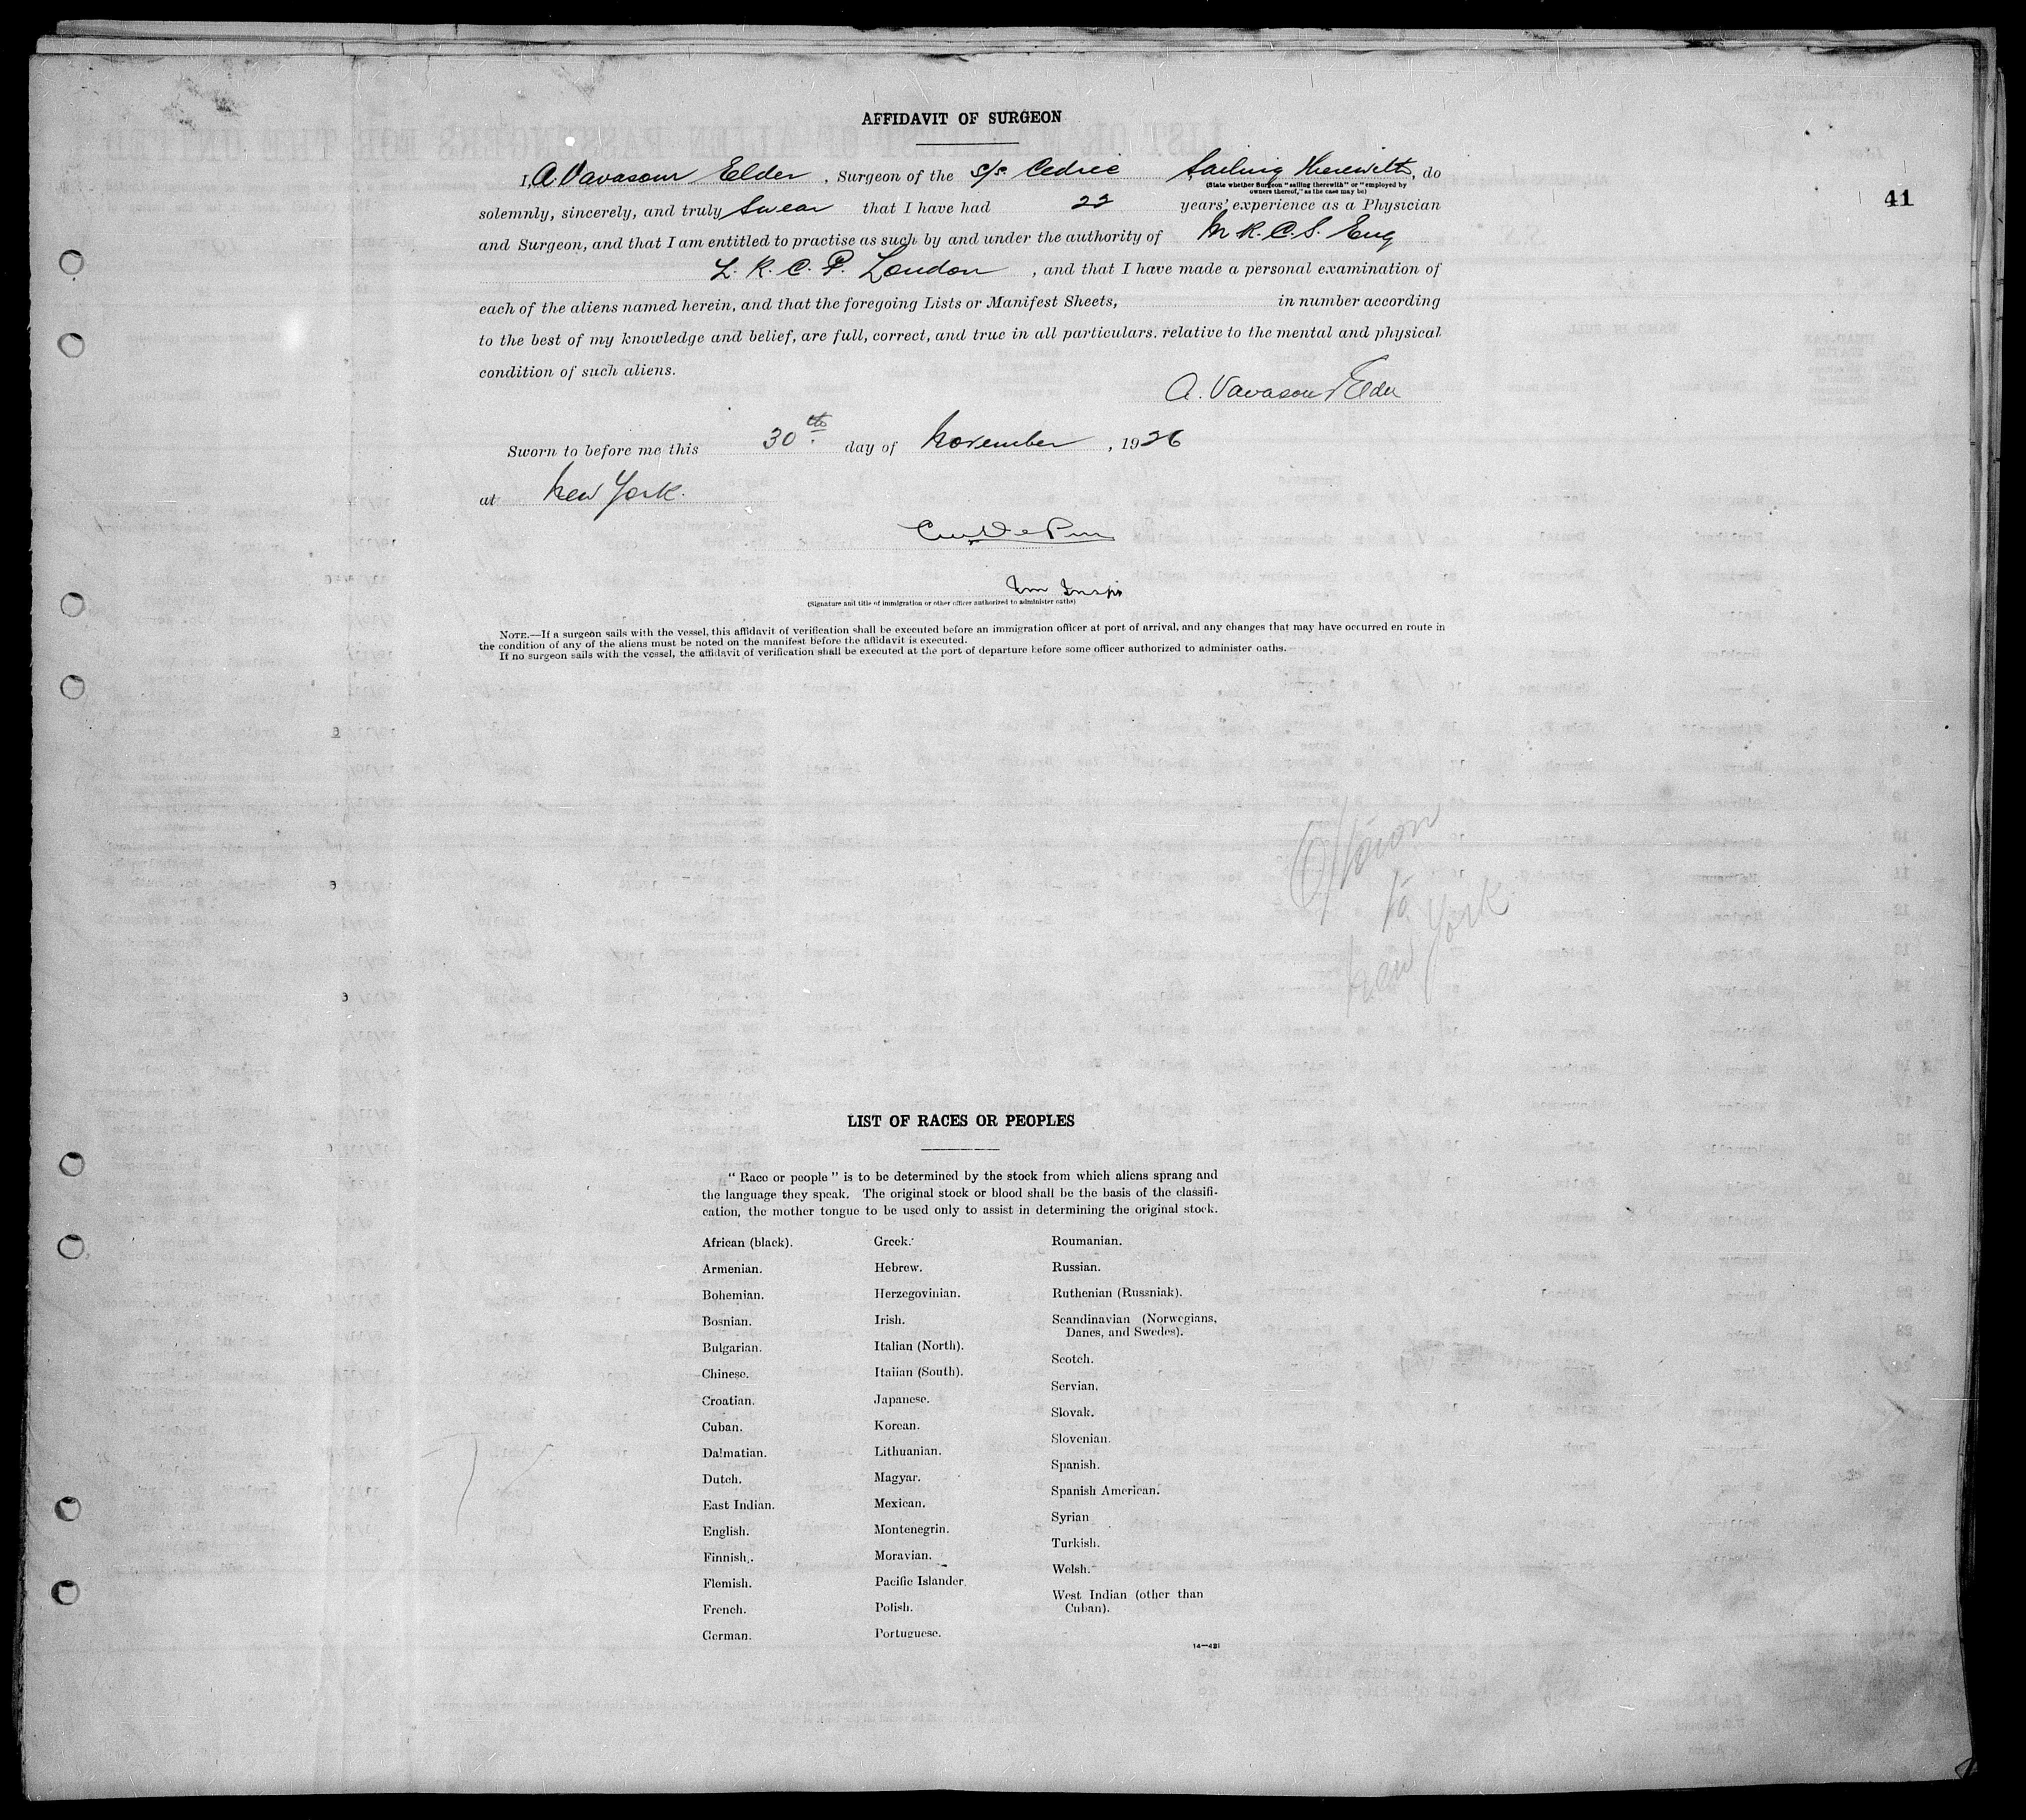 AFFIDAVIT OF SURGEON
I, A. Vavasour Elder, Surgeon of the S/S. Cedric Sailing Therewith, do
(State whether Surgeon "sailing therewith" or "employed by
owners thereof," as the case may be)
41
solemnly, sincerely, and truly swear that I have had 22 years' experience as a Physician
and Surgeon, and that I am entitled to practise as such by and under the authority of M.R.C.S. Eng
L. R. C. P. London, and that I have made a personal examination of
each of the aliens named herein, and that the foregoing Lists or Manifest Sheets, in number according
to the best of my knowledge and belief, are full, correct, and true in all particulars. relative to the mental and physical
condition of such aliens.
A. Vavasour Elder
Sworn to before me this 30th. day of November, 1926
at New York.
Imm Inspr
(Signature and title of immigration or other officer authorized to administer oaths)
NOTE.—If a surgeon sails with the vessel, this affidavit of verification shall be executed before an immigration officer at port of arrival, and any changes that may have occurred en route in
the condition of any of the aliens must be noted on the manifest before the affidavit is executed.
If no surgeon sails with the vessel, the affidavit of verification shall be executed at the port of departure before some officer authorized to administer oaths.
to
New York
LIST OF RACES OR PEOPLES
"Race or people" is to be determined by the stock from which aliens sprang and
the language they speak. The original stock or blood shall be the basis of the classifi-
cation, the mother tongue to be used only to assist in determining the original stock.
African (black).
Armenian.
Bohemian.
Bosnian.
Bulgarian.
Chinese.
Croatian.
Cuban.
Dalmatian.
Dutch.
East Indian.
English.
Finnish.
Flemish.
French.
German.
Greek.
Hebrew.
Herzegovinian.
Irish.
Italian (North).
Italian (South).
Japanese.
Korean.
Lithuanian.
Magyar.
Mexican.
Montenegrin.
Moravian.
Pacific Islander.
Polish.
Portuguese.
Roumanian.
Russian.
Ruthenian (Russniak).
Scandinavian (Norwegians,
Danes, and Swedes).
Scotch.
Servian.
Slovak.
Slovenian.
Spanish.
Spanish American.
Syrian
Turkish.
Welsh.
West Indian (other than
Cuban).
14—421